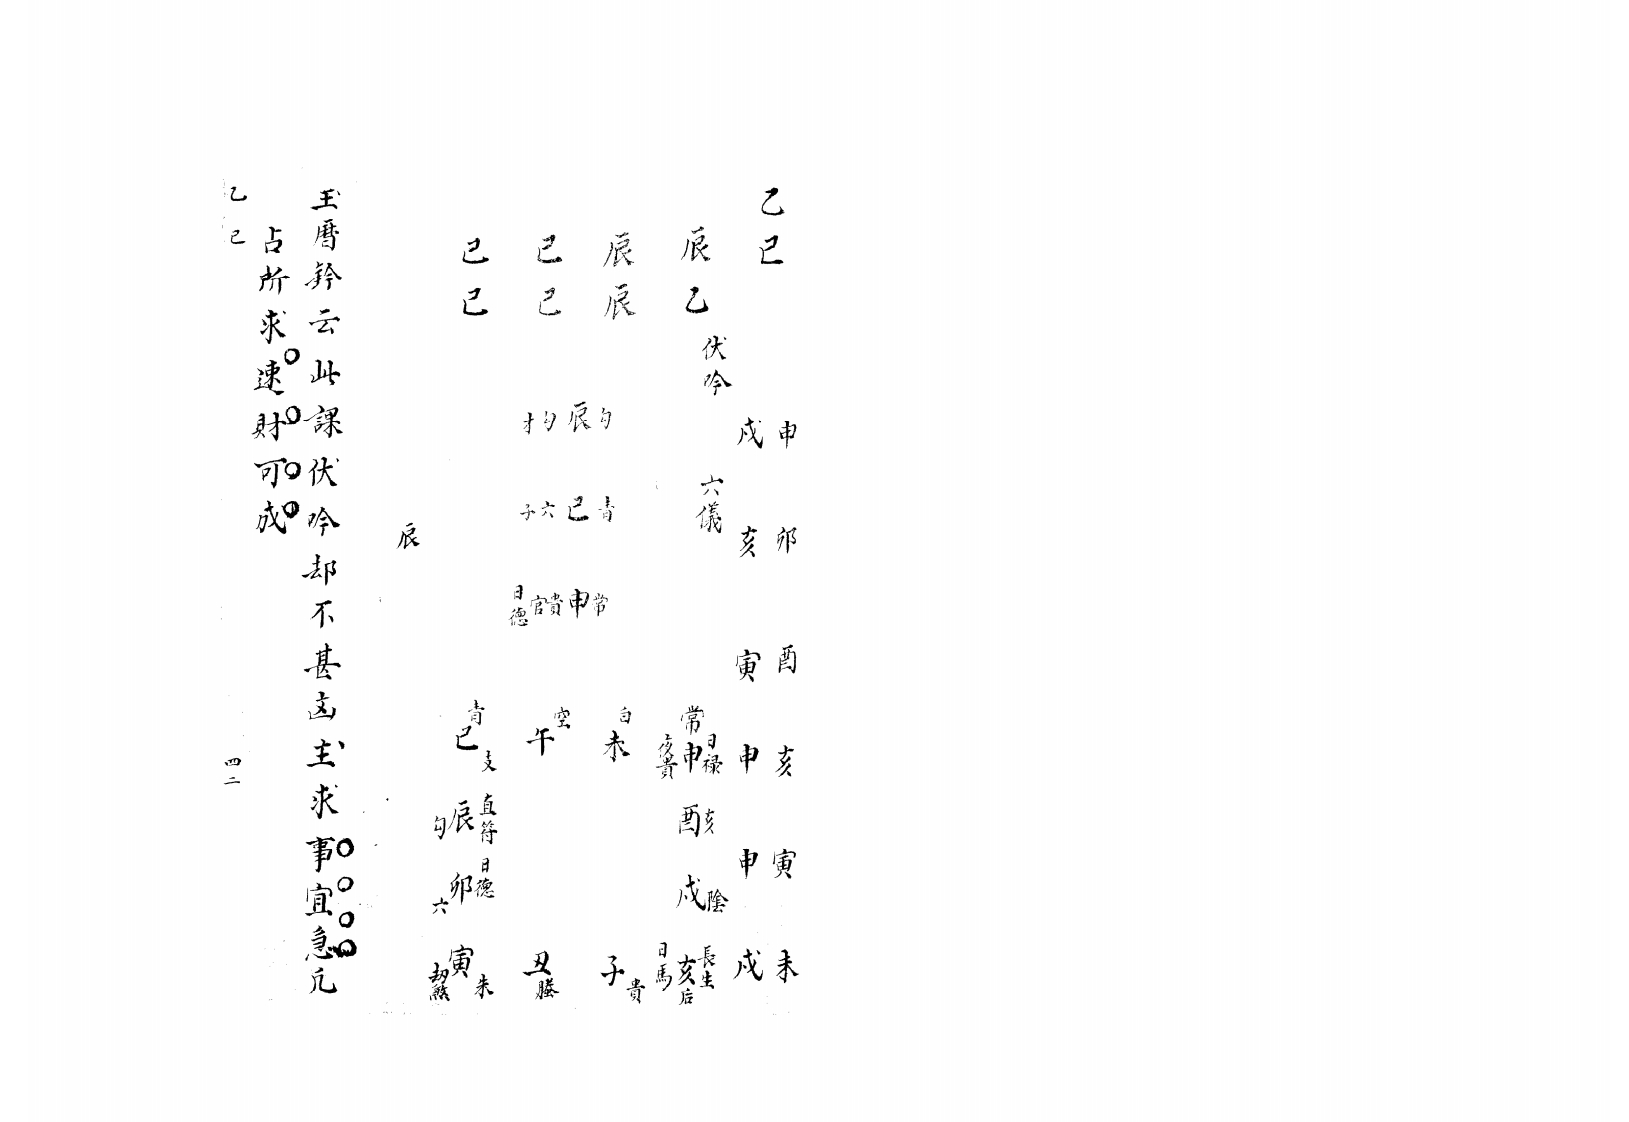 乙巳
申 卯 酉 亥 寅 未
戌 亥 寅 申 申 戌
伏吟 六儀
辰 辰 巳 巳
乙 辰 巳 巳
勾 辰 勾 才
青 巳 六 子
常 申 貴 官 日德
青 巳 支
空 午
白 未
常 申 日禄 夜貴
直符 辰 勾
玄 酉
日德 卯 六
戌 陰
寅 朱 劫煞
丑 螣
子 貴
長生 亥 后 日馬
辰
玉曆鈐云此課伏吟却不甚凶主求事宜急凡
占所求速財可成
乙巳 四二